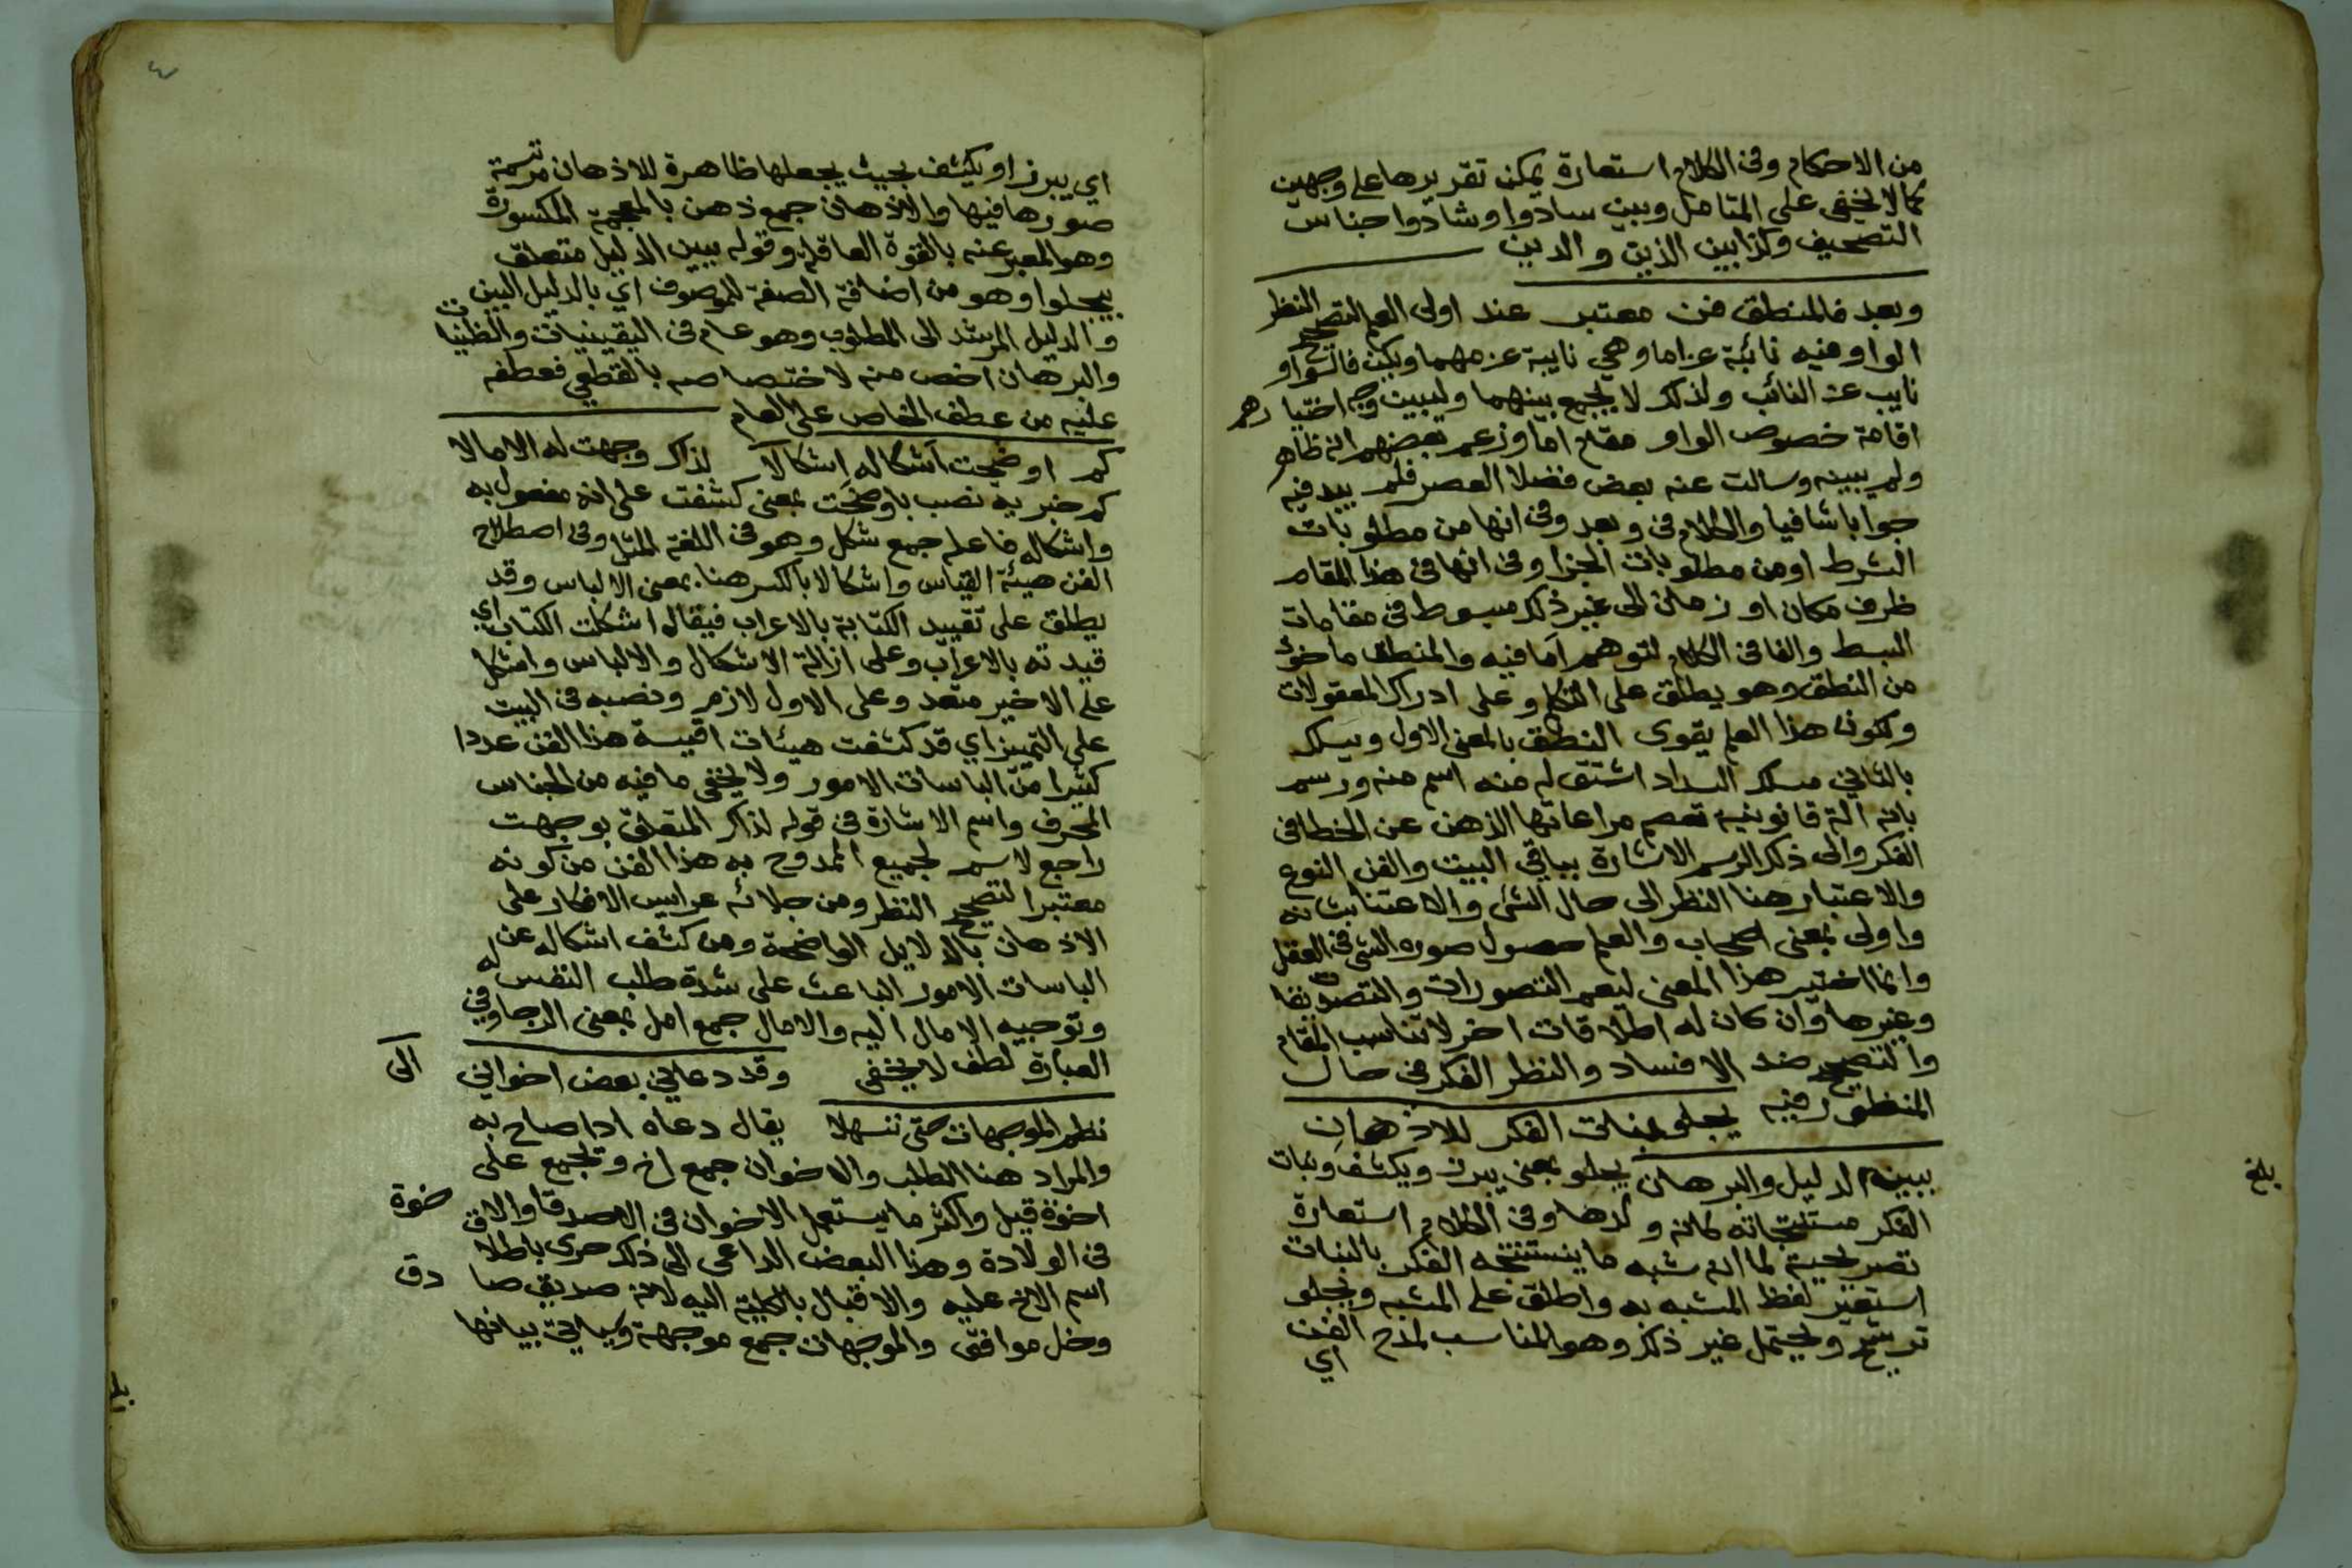 من الاحكام وفى الكلام استعارة يمكن تقريرها على وجهين
كما لا يخفى على المتامل وبين سادوا وشادوا جناس
التصحيف وكذا بين الذين والدين
وبعد فالمنطق فن معتبر عند اولى العلم لتصحيح النظر
الواو فيه نائبة عن اما وهي نايبة عن مهما ويكن فالواو
نايب عن النائب ولذلك لا يجمع بينهما وليبين وجه اختيارهم
اقامة خصوص الواو مقام اما وزعم بعضهم انه ظاهر
ولم يبينه وسالت عنه بعض فضلا العصر فلم يبد فيه
جوابا شافيا والكلام فى وبعد وفى انها من مطلوبات
الشرط او من مطلوبات الجزا وفى انها فى هذا المقام
ظرف مكان او زمان الى غير ذلك مبسوط فى مقامات
البسط والفا فى الكلام لتوهم اما فيه والمنطق ماخوذ
من النطق وهو يطلق على التكلم وعلى ادراك المعقولات
ولكون هذا العلم يقوى النطق بالمعنى الاول ويسلك
بالثاني مسلك السداد اشتق له منه اسم منه ورسم
بانه الة قانونية تعصم مراعاتها الذهن عن الخطا فى
الفكر والى ذلك الرسم الاشارة بباقي البيت والفن النوع
والاعتبار هنا النظر الى حال الشئ والاعتنا بشانه
واولى بمعنى اصحاب والعلم حصول صورة الشئ فى العقل
وانما اختير هذا المعنى ليعم التصورات والتصديقات
وغيرها وان كان له اطلاقات اخر لا تناسب المقام
والتصحيح ضد الافساد والنظر الفكر فى حال
المنظور فيه يجلو بنات الفكر للاذهان
ببين الدليل والبرهان يجلو بمعنى يبرز ويكشف وبنات
الفكر مستنتجاته لانه ولدها وفى الكلام استعارة
تصريحية لما انه شبه ما يستنتجه الفكر بالبنات
استعير لفظ المشبه به واطلق على المشبه ويجلو
ترشيح ويحتمل غير ذلك وهو المناسب لمدح الفن
اي
بلغ
٤
اي يبرز او يكشف بحيث يجعلها ظاهرة للاذهان مرتسمة
صورها فيها والاذهان جمع ذهن بالمعجمة المكسورة
وهو المعبر عنه بالقوة العاقلة وقوله ببين الدليل متعلق
بيجلوا وهو من اضافة الصفة للموصوف اي بالدليل البين
والدليل المرشد الى المطلوب وهو عام فى اليقينيات والظنيات
والبرهان اخص منه لاختصاصه بالقطعي فعطفه
عليه من عطف الخاص على العام
كم اوضحت اشكاله اشكالا لذاك وجهت له الامالا
كم خبريه نصب باوضحت بمعنى كشفت على انه مفعول به
واشكاله فاعله جمع شكل وهو فى اللغة المثل وفى اصطلاح
الفن هيئة القياس واشكالا بالكسر هنا بمعنى الالباس وقد
يطلق على تقييد الكتابة بالاعراب فيقال اشكلت الكتاب اي
قيدته بالاعراب وعلى ازالة الاشكال والالباس واشكل
على الاخير متعد وعلى الاول لازم ونصبه فى البيت
على التمييز اي قد كشفت هيئات اقيسة هذا الفن عددا
كثيرا من الباسات الامور ولا يخفى ما فيه من الجناس
المحرف واسم الاشارة فى قوله لذاك المتعلق بوجهت
راجع لاسم لجميع الممدوح به هذا الفن من كونه
معتبرا لتصحيح النظر ومن جلائه عرايس الافكار على
الاذهان بالدلايل الواضحة ومن كشف اشكاله عن
الباسات الامور الباعث على شدة طلب النفس له
وتوجيه الامال اليه والامال جمع امل بمعنى الرجا وفي
العبارة لطف لا يخفى وقد دعاني بعض اخواني الى
نظم الموجهات حتى تسهلا يقال دعاه اذا صاح به
والمراد هنا الطلب والاخوان جمع اخ ويجمع على
اخوة قيل واكثر ما يستعمل الاخوان فى الاصدقا والاخوة
فى الولادة وهذا البعض الداعى الى ذلك حرى باطلاق
اسم الاخ عليه والاقبال بالكلية اليه لانه صديق صادق
وخل موافق والموجهات جمع موجهة وسياتي بيانها